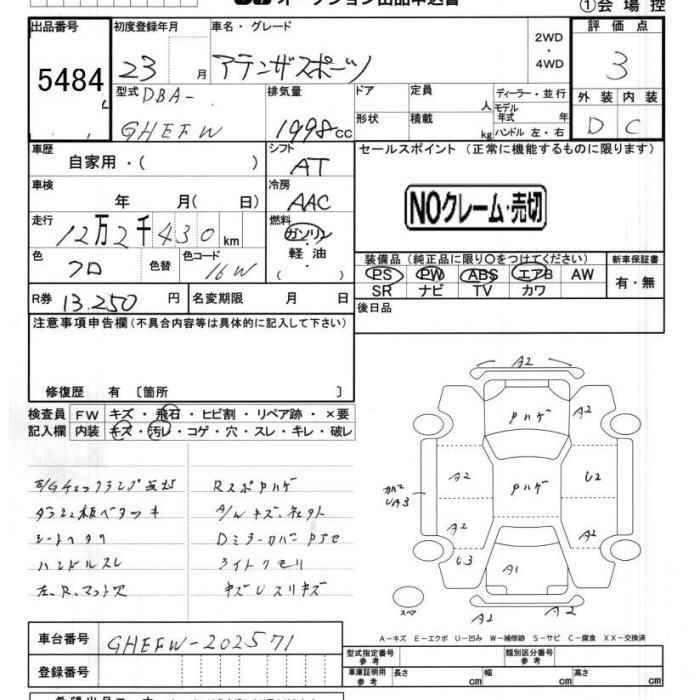 オークション出品申込書
①会場控
出品番号 初度登録年月 車名・グレード 評価点
5484 23 月 アテンザスポーツ 2WD・4WD 3
型式 DBA- 排気量 ドア 定員 人 ディーラー・並行 外装 内装
GHEFW 1998cc 形状 積載 kg モデル年式 年 ハンドル 左・右 D C
車歴 シフト セールスポイント (正常に機能するものに限ります)
自家用・( ) AT
車検 冷房
年 月( 日) AAC NOクレーム・売切
走行 燃料
12万2千430km ガソリン・軽油・( )
色 色替 色コード 装備品(純正品に限り○をつけてください) 新車保証書
クロ 16W PS PW ABS エアB AW 有・無
SR ナビ TV カワ
R券 13.250円 名変期限 月 日 後日品
注意事項申告欄(不具合内容等は具体的に記入して下さい)
修復歴 有 〔箇所 〕
検査員 FW キズ・飛石・ヒビ割・リペア跡・×要
記入欄 内装 キズ・汚レ・コゲ・穴・スレ・キレ・破レ
E/Gチェックランプ点灯 RスポPハゲ
ダッシュ板ベタツキ A/Wキズ、
シートヘタリ DミラーカバーP
ハンドルスレ ライトクモリ
左、R、マット欠 キズUスリキズ
A2
A2 Pハゲ A2
A2 Pハゲ U2
カバーUA3
A2 A2
U3 A1
スペア A2 A2
A-キズ E-エクボ U-凹み W-補修跡 S-サビ C-腐食 XX-交換済
車台番号 GHEFW-202571
型式指定番号 参考 類別区分番号 参考
登録番号 車庫証明用 参考 長さ cm 幅 cm 高さ cm